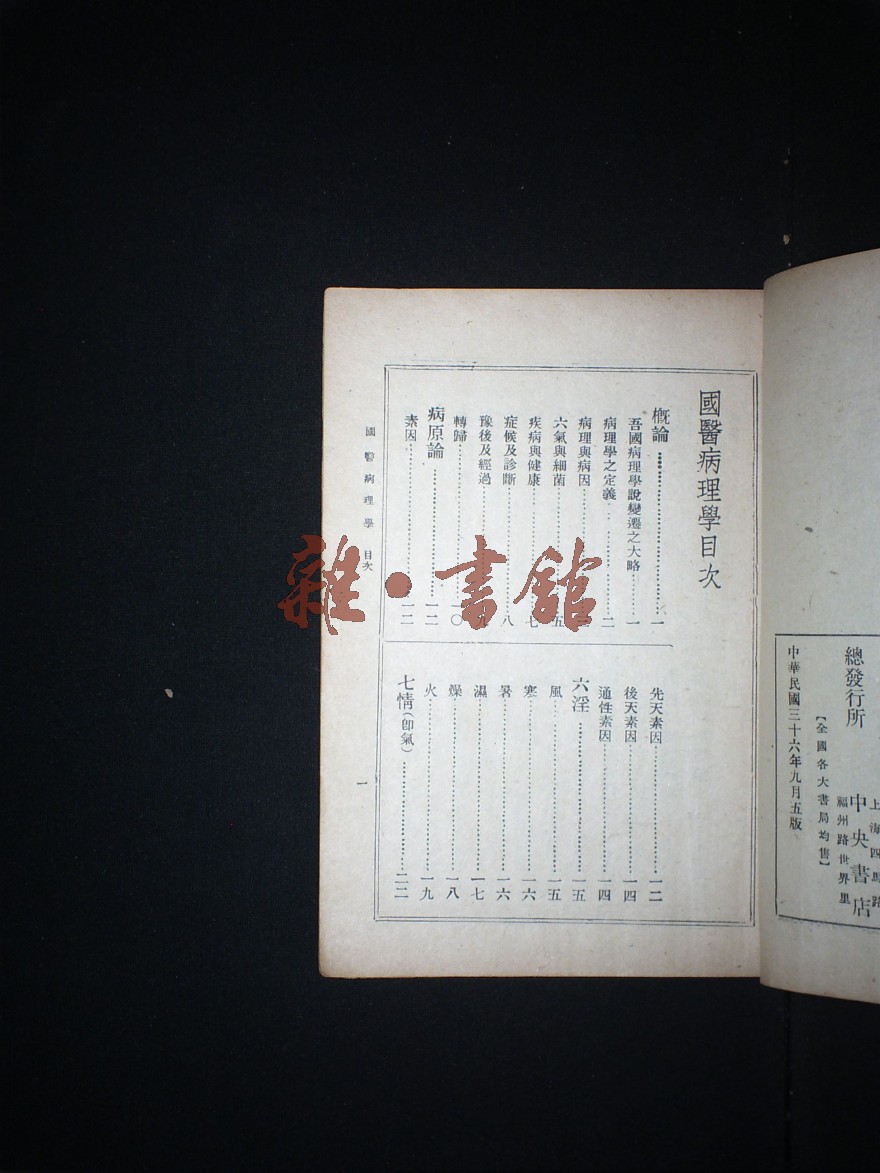 國醫病理學目次
概論 一
吾國病理學說變遷之大略 一
病理學之定義 二
病理與病因
六氣與細菌 五
疾病與健康 七
症候及診斷 八
豫後及經過 九
轉歸 一〇
病原論 一二
素因 一二
先天素因 一二
後天素因 一四
通性素因 一四
六淫 一五
風 一五
寒 一六
暑 一六
濕 一七
燥 一八
火 一九
七情(卽氣) 二二
國醫病理學 目次
一
總發行所
上海四馬路
中央書店
福州路世界里
【全國各大書局均售】
中華民國三十六年九月五版
雜·書館